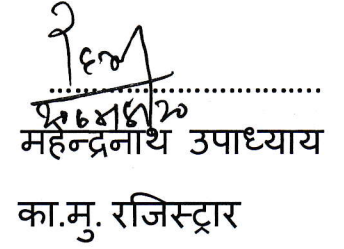 महेन्द्रनाथ उपाध्याय
का.मु. रजिस्ट्रार